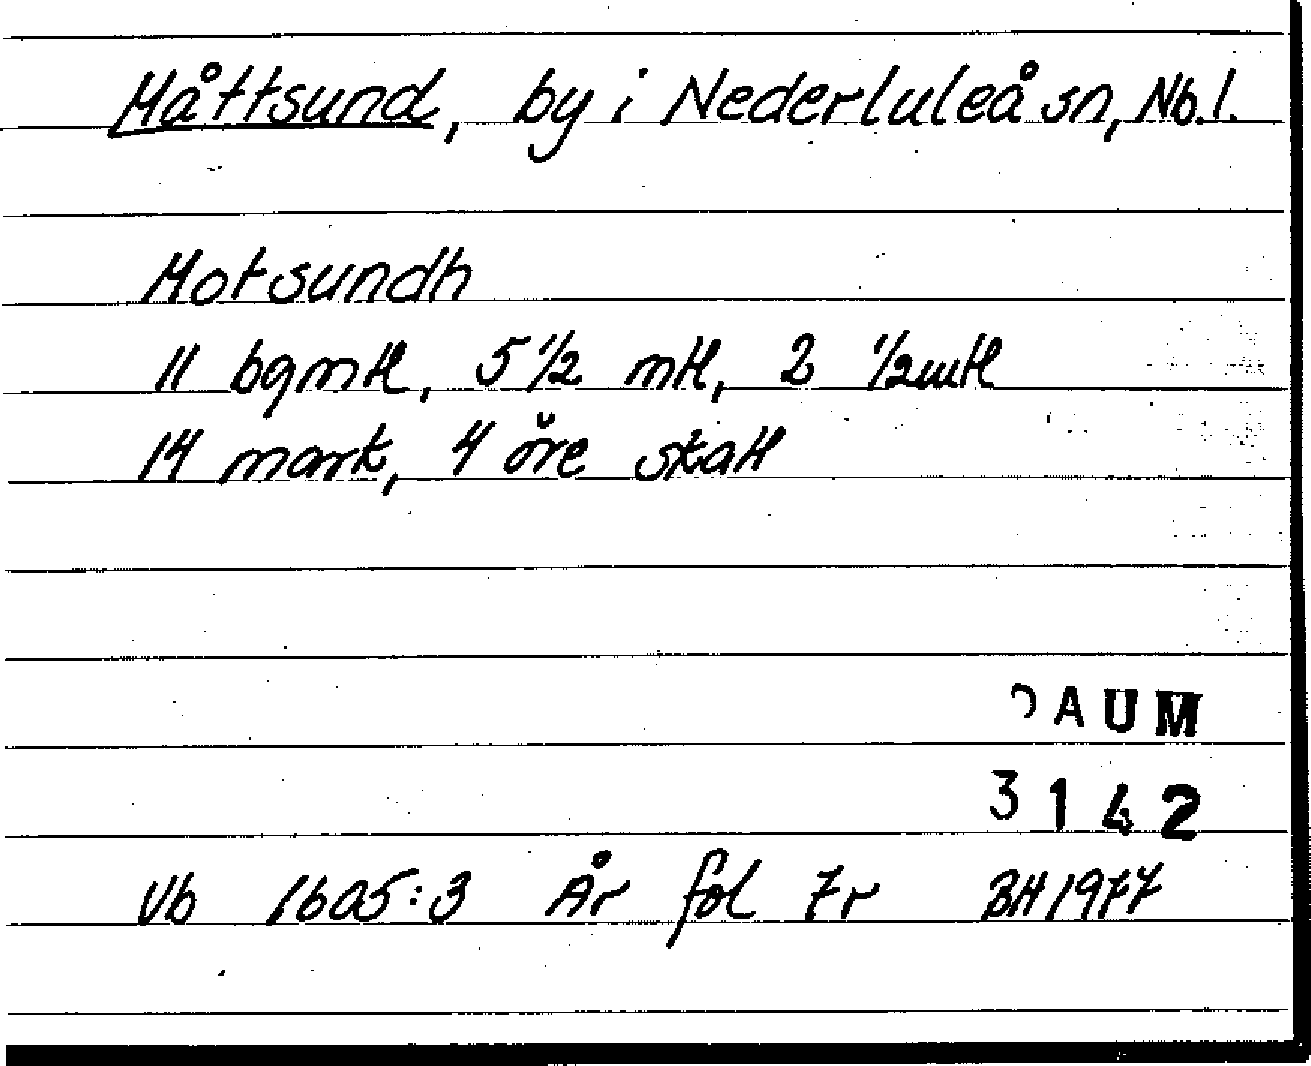 Måttsund, by i Nederluleå sn, Nb.l.
Motsundh
11 bgmtl, 5 1/2 mtl, 2 1/2mtl
14 mark, 4 öre skatt
DAUM
3142
Vb 1605:3 År fol 7r BH 1977